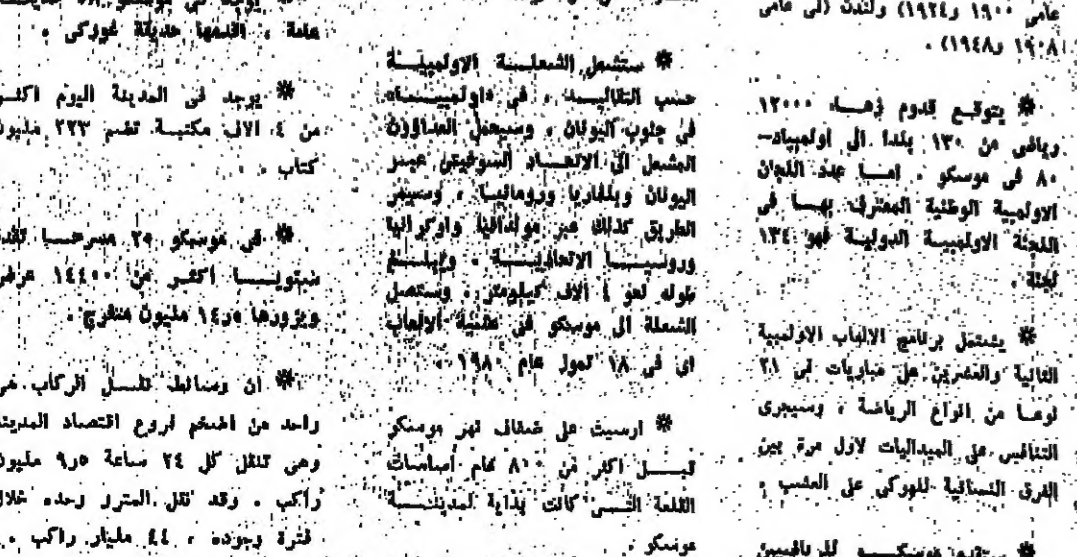 عامى ١٩٠٠ و١٩٢٤) ولندن (فى عامى
١٩٠٨ و١٩٤٨) .
* يتوقع قدوم زهاء ١٢٠٠٠
رياضى من ١٣٠ بلدا الى اولمبياد–
٨٠ فى موسكو . اما عدد اللجان
الاولمبية الوطنية المعترف بها فى
اللجنة الاولمبية الدولية فهو ١٣٤
لجنة .
* يشتمل برنامج الالعاب الاولمبية
الثانية والعشرين على مباريات فى ٢١
نوعا من انواع الرياضة ، وسيجرى
التنافس على الميداليات لاول مرة بين
الفرق النسائية للهوكى على العشب .
* موسكو للرياضيين
* ستشعل الشعلة الاولمبية
حسب التقاليد ، فى «اولمبيا»
فى جنوب اليونان ، وسيحمل العداؤون
المشعل الى الاتحاد السوفيتى عبر
اليونان وبلغاريا ورومانيا ، وسيمر
الطريق كذلك عبر مولدافيا واوكرانيا
وروسيا الاتحادية . ويبلغ
طوله نحو ٤ الاف كيلومتر . وستصل
الشعلة الى موسكو فى عشية الالعاب
اى فى ١٨ تموز عام ١٩٨٠ .
* ارسيت على ضفاف نهر موسكو
قبل اكثر من ٨٠٠ عام أساسات
القلعة التى كانت بداية لمدينة
موسكو .
* يوجد فى موسكو
عامة ، اقدمها حديقة غوركى .
* يوجد فى المدينة اليوم اكثر
من ٤ الاف مكتبة تضم ٢٢٣ مليون
كتاب .
* فى موسكو ٢٥ مسرحا تقدم
سنويا اكثر من ١٤٤٠٠ عرض
ويزورها ١٤٫٥ مليون متفرج .
* ان وسائط نقل الركاب هى
واحد من اضخم فروع اقتصاد المدينة
وهى تنقل كل ٢٤ ساعة ٩٫٥ مليون
راكب . وقد نقل المترو وحده خلال
فترة وجوده ، ٤٤ مليار راكب .